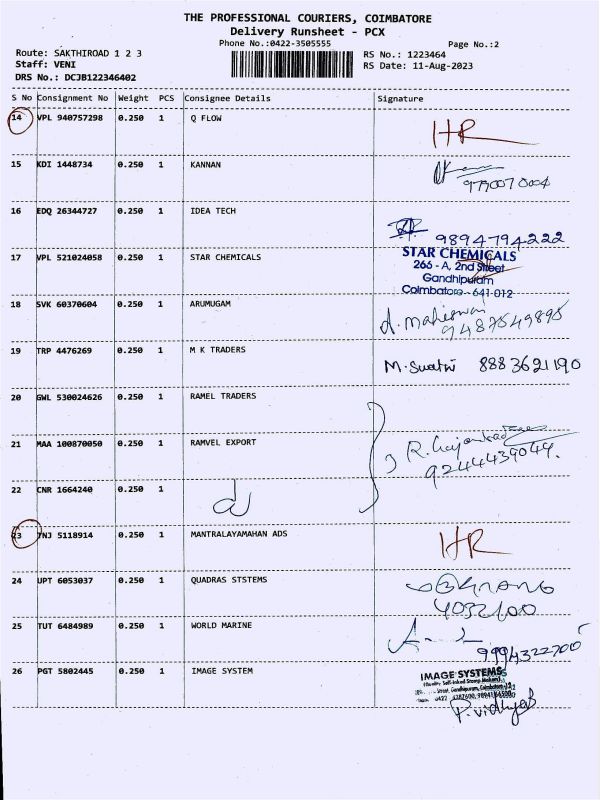 THE PROFESSIONAL COURIERS, COIMBATORE
Delivery Runsheet - PCX
Phone No.:0422-3505555 Page No.:2
Route: SAKTHIROAD 1 2 3 RS No.: 1223464
Staff: VENI RS Date: 11-Aug-2023
DRS No.: DCJB122346402
S No Consignment No Weight PCS Consignee Details Signature
14 VPL 940757298 0.250 1 Q FLOW
HR
15 KDI 1448734 0.250 1 KANNAN
16 EDQ 26344727 0.250 1 IDEA TECH
9894794222
17 VPL 521024058 0.250 1 STAR CHEMICALS
STAR CHEMICALS
266 - A, 2nd Street
Gandhipuram
Coimbatore - 641-012
18 SVK 60370604 0.250 1 ARUMUGAM
19 TRP 4476269 0.250 1 M K TRADERS
8883621190
20 GWL 530024626 0.250 1 RAMEL TRADERS
21 MAA 100870050 0.250 1 RAMVEL EXPORT
9244439049.
22 CNR 1664240 0.250 1
23 TNJ 5118914 0.250 1 MANTRALAYAMAHAN ADS
HR
24 UPT 6053037 0.250 1 QUADRAS STSTEMS
25 TUT 6484989 0.250 1 WORLD MARINE
9994322700
26 PGT 5802445 0.250 1 IMAGE SYSTEM
IMAGE SYSTEMS
P. vidhya